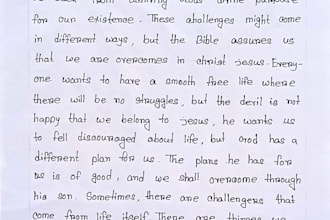 for our existence. These challenges might come
in different ways, but the Bible assures us
that we are overcomes in christ jesus. Every-
one wants to have a smooth free life where
there will be no struggles, but the devil is not
happy that we belong to jesus, he wants us
to fell discouraged about life, but God has a
different plan for us. The plans he has for
us is of good, and we shall overcome through
his son. Sometimes, there are challengens that
come from life itself. There are things we